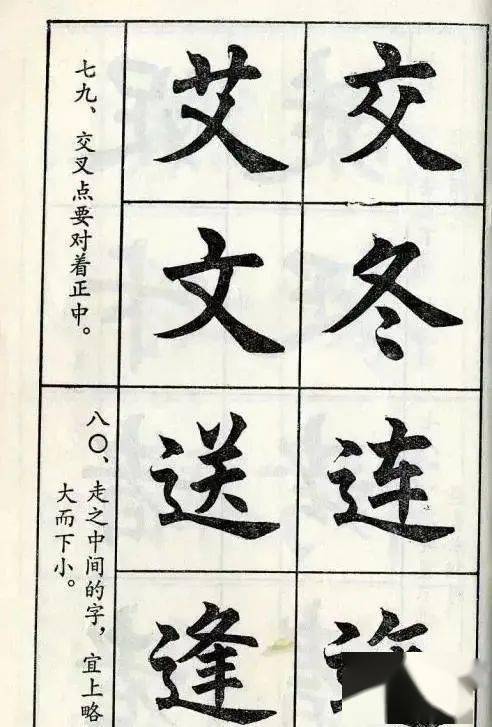 七九、交叉点要对着正中。
交
冬
艾
文
八〇、走之中间的字，宜上略
大而下小。
连
送
逢